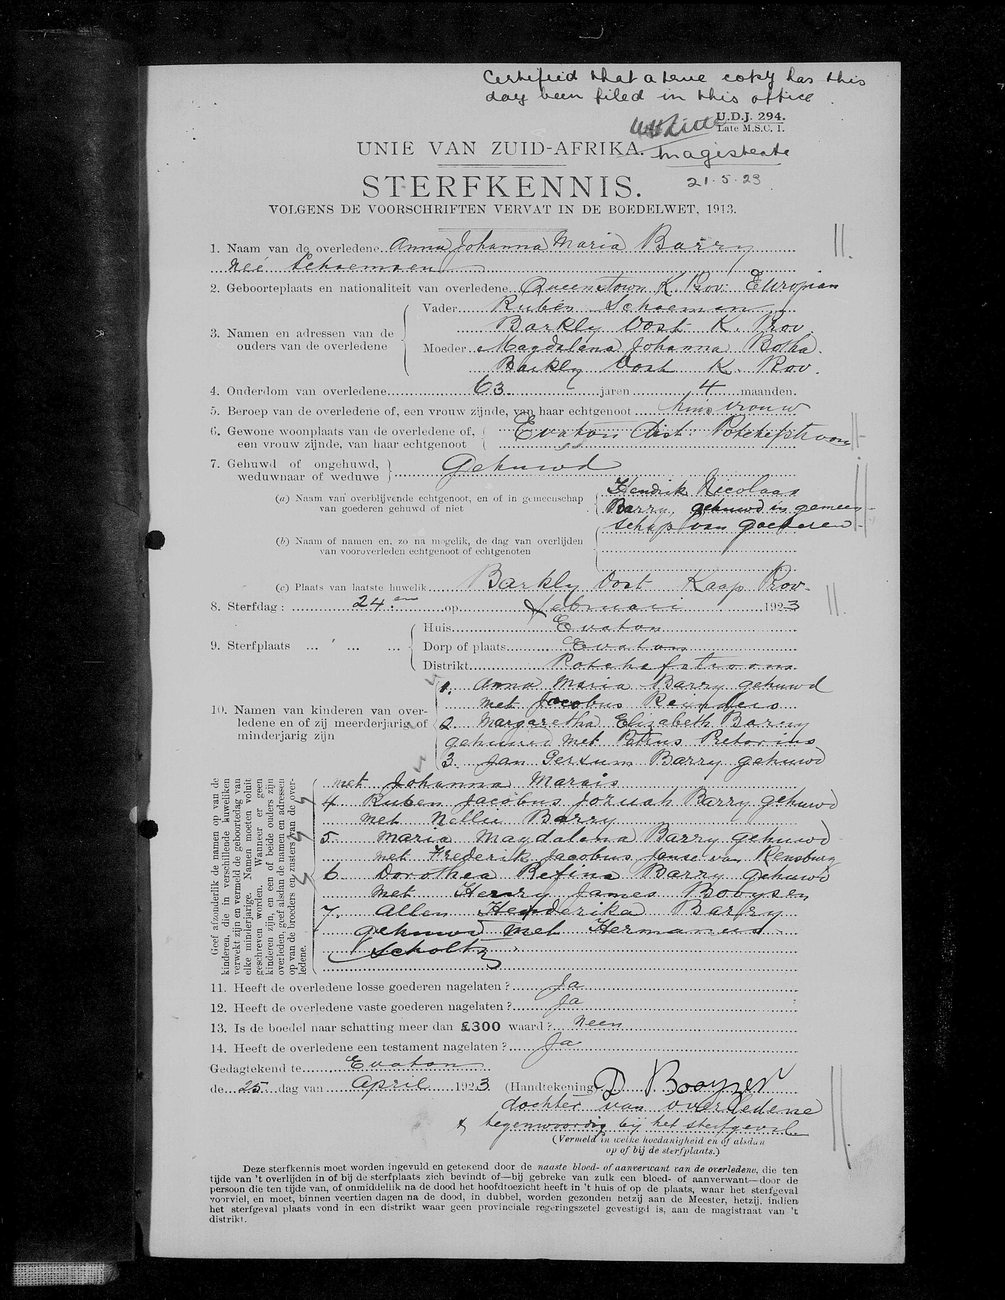 Certified that a true copy has this
day been filed in this office.
U.D.J. 294.
Late M.S.C. 1.
UNIE VAN ZUID-AFRIKA.
Magistrate
21.5.23
STERFKENNIS.
VOLGENS DE VOORSCHRIFTEN VERVAT IN DE BOEDELWET, 1913.
1. Naam van de overledene Anna Johanna Maria Barry
neé Schoemsen
2. Geboorteplaats en nationaliteit van overledene Queenstown K. Prov. Europian
Vader Ruben Schoeman
Barkly Oost K. Prov.
3. Namen en adressen van de ouders van de overledene
Moeder Magdalena Johanna Botha.
Barkly Oost K. Prov.
4. Ouderdom van overledene 63 jaren 4 maanden.
5. Beroep van de overledene of, een vrouw zijnde, van haar echtgenoot vrouw
6. Gewone woonplaats van de overledene of, een vrouw zijnde, van haar echtgenoot Evaton Dist: Potchefstroom
7. Gehuwd of ongehuwd, weduwnaar of weduwe Gehuwd
(a) Naam van overblijvende echtgenoot, en of in gemeenschap van goederen gehuwd of niet
Hendrik Nicolaas
Barry, gehuwd in gemeen-
schap van goederen
(b) Naam of namen en, zo na mogelik, de dag van overlijden van vooroverleden echtgenoot of echtgenoten
(c) Plaats van laatste huwelik Barkly Oost Kaap Prov.
8. Sterfdag: 24en op Februari 1923
Huis Evaton
9. Sterfplaats ... ... ... Dorp of plaats Evaton
Distrikt Potchefstroom
10. Namen van kinderen van overledene en of zij meerderjarig of minderjarig zijn
1. Anna Maria Barry gehuwd
met Jacobus Reynders
2. Margaretha Elizabeth Barry
gehuwd met Petrus Pretorius
3. Jan Gersum Barry gehuwd
met Johanna Marais
4 Ruben Jacobus Jozuah Barry gehuwd
met Nellie Barry
5. Maria Magdalena Barry gehuwd
met Frederik Jacobus Janse van Rensburg
6 Dorothea Refina Barry gehuwd
met Henry James Booysen
7. Allen Henderika Barry
gehuwd met Hermanus
Scholtz
Geef afzonderlik de namen op van de
kinderen, die in verschillende huweliken
verwekt zijn en vermeld de geboortedag van
elke minderjarige. Namen moeten voluit
geschreven worden. Wanneer er geen
kinderen zijn, en een of beide ouders zijn
overleden, geef alsdan de namen en adressen
op van de broeders en zusters van de over-
ledene.
11. Heeft de overledene losse goederen nagelaten? Ja
12. Heeft de overledene vaste goederen nagelaten? Ja
13. Is de boedel naar schatting meer dan £300 waard? Neen
14. Heeft de overledene een testament nagelaten? Ja
Gedagtekend te Evaton
de 25 dag van April 1923 (Handtekening) D Booyzen
dochter van overledene
& tegenwoordig bij het sterfgeval
(Vermeld in welke hoedanigheid en of alsdan
op of bij de sterfplaats.)
Deze sterfkennis moet worden ingevuld en getekend door de naaste bloed- of aanverwant van de overledene, die ten
tijde van 't overlijden in of bij de sterfplaats zich bevindt of—bij gebreke van zulk een bloed- of aanverwant—door de
persoon die ten tijde van, of onmiddelik na de dood het hoofdtoezicht heeft in 't huis of op de plaats, waar het sterfgeval
voorviel, en moet, binnen veertien dagen na de dood, in dubbel, worden gezonden hetzij aan de Meester, hetzij, indien
het sterfgeval plaats vond in een distrikt waar geen provinciale regeringszetel gevestigd is, aan de magistraat van 't
distrikt.